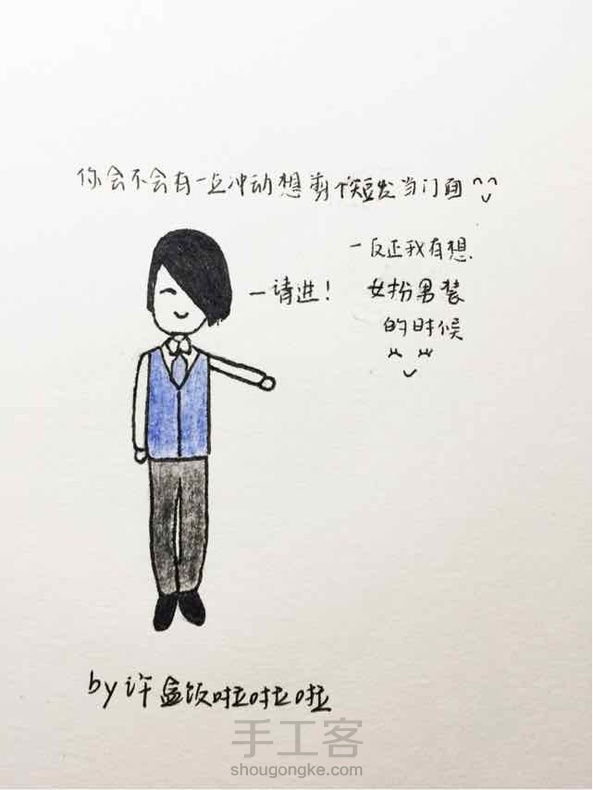 你会不会有一点冲动想剪个短发当门面
一请进！
一反正我有想
女扮男装
的时候
by 许盒饭啦啦啦
手工客
shougongke.com